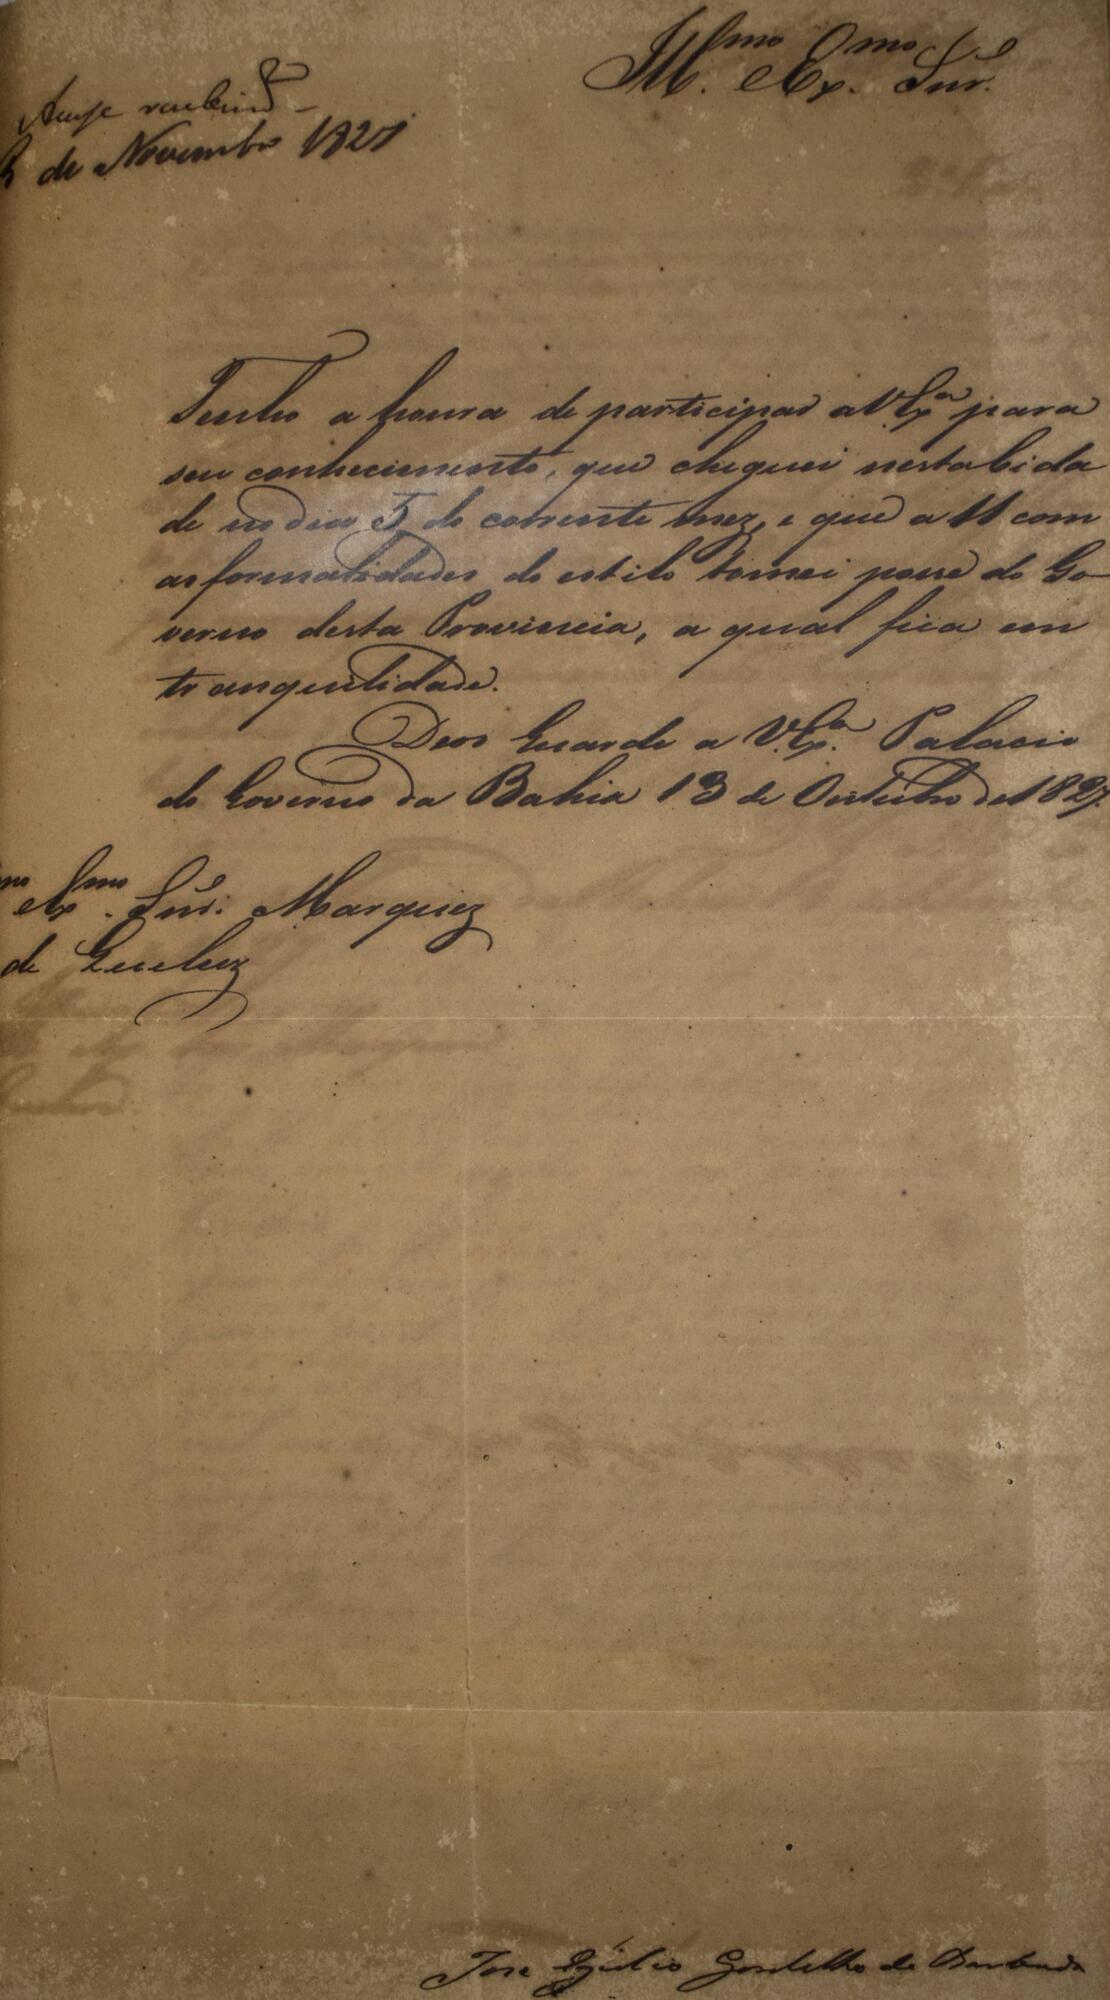 Ill.mo Ex.mo Snr.
Accuse recebida
de Novembro 1827
Tenho a honra de participar a V. Ex.a para
seu conhecimento, que cheguei nesta Cida
de no dia 5 do corrente mez, e que a 11 com
as formalidades do estilo tomei posse do Go-
verno desta Provincia, a qual fica em
tranquilidade.
Deos Guarde a V. Ex.a Palacio
do Governo da Bahia 13 de Outubro de 1827.
mo Ex.mo Snr. Marquez
de Queluz
Jose Egidio Gordilho de Barbuda